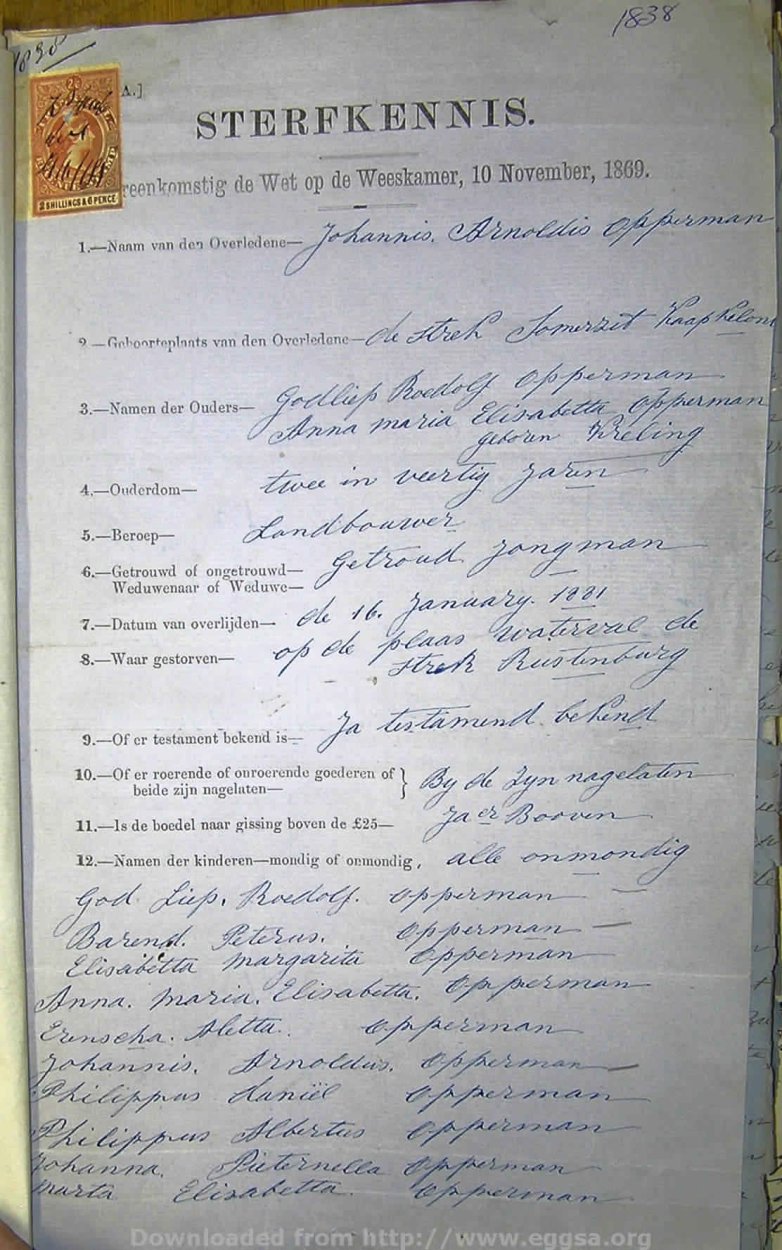 1838
1838
A.]
2 SHILLINGS & 6 PENCE
STERFKENNIS.
reenkomstig de Wet op de Weeskamer, 10 November, 1869.
1.—Naam van den Overledene— Johannis. Arnoldis Opperman
2.—Geboorteplaats van den Overledene— de strek Somerzet Kaap Keloni
3.—Namen der Ouders— Godliep Roedolf Opperman
Anna maria Elisabetta Opperman
geboren Kreling
4.—Ouderdom— twee in veertig Jaren
5.—Beroep— Landbouwer
6.—Getrouwd of ongetrouwd— Getroud jongman
Weduwenaar of Weduwe—
7.—Datum van overlijden— de 16. January. 1881
8.—Waar gestorven— op de plaas waterval de
strek Rustenburg
9.—Of er testament bekend is— Ja testamend bekend
10.—Of er roerende of onroerende goederen of } By de Zyn nagelaten
beide zijn nagelaten—
11.—Is de boedel naar gissing boven de £25— Ja er Booven
12.—Namen der kinderen—mondig of onmondig, alle onmondig
God Liep. Roedolf. Opperman
Barend. Peterus. Opperman
Elisabetta margarita Opperman
Anna. maria. Elisabetta. Opperman
Erenscha. Aletta. Opperman
Johannis. Arnoldus. Opperman
Philippus Daniël Opperman
Philippus Albertus Opperman
Johanna. Pieternella Opperman
marta Elizabetta. Opperman
Downloaded from http://www.eggsa.org